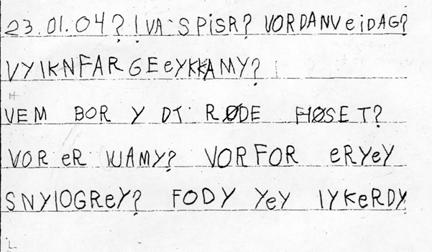 23.01.04? IVA SPISR? VORDANVeiDAG?
VYIKNFARGEeYKKAMY?
VEM BOR Y DT RØDE HØSET?
VOR eR WAMY? VORFOR eRYeY
SNYIOGReY? FODY YeY IYKeRDY